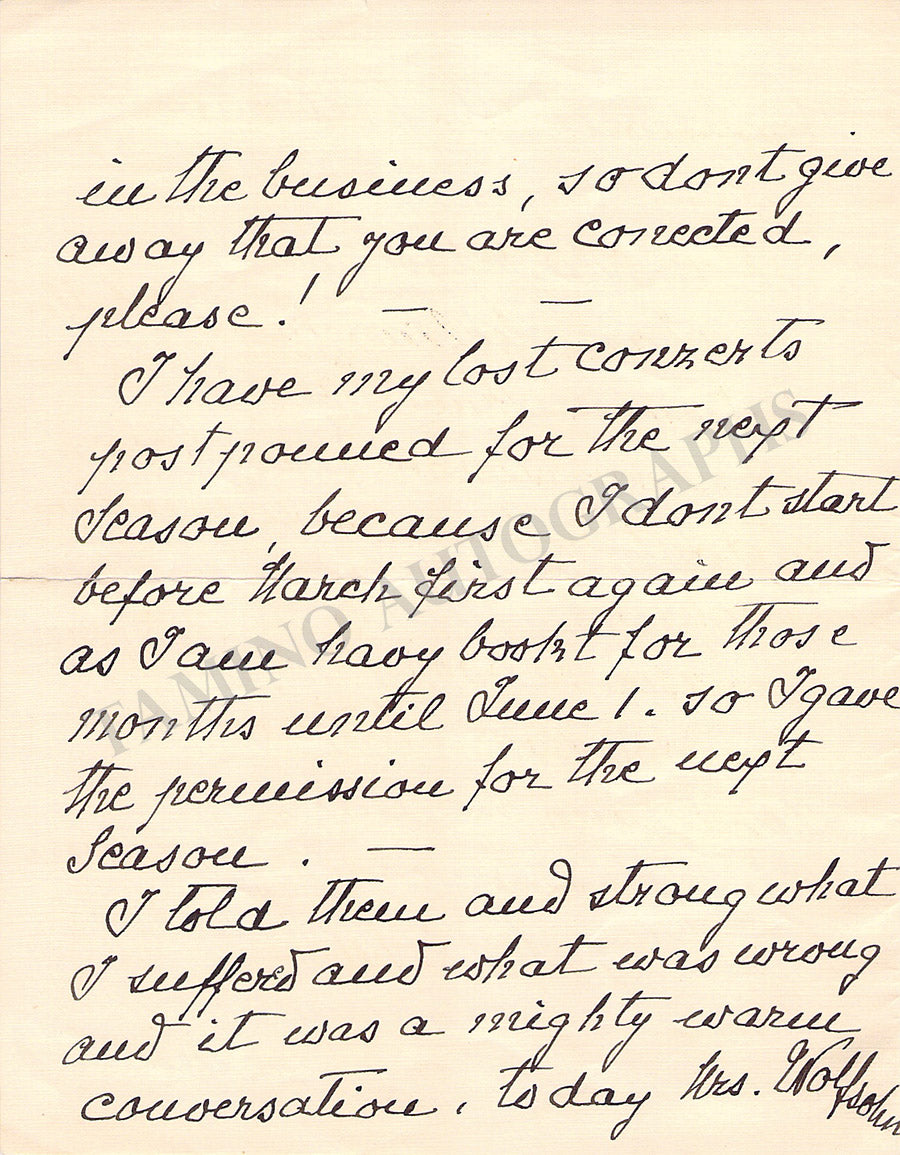 in the business, so dont give
away that you are conected,
please! — —
I have my lost conzerts
postponned for the next
Season, because I dont start
before March first again and
as I am havy bookt for those
months until June 1. so I gave
the permission for the next
Season. —
I told them and strong what
I sufferd and what was wrong
and it was a mighty warm
conversation, today Mrs. Wolfsohn
TAMINO AUTOGRAPHS